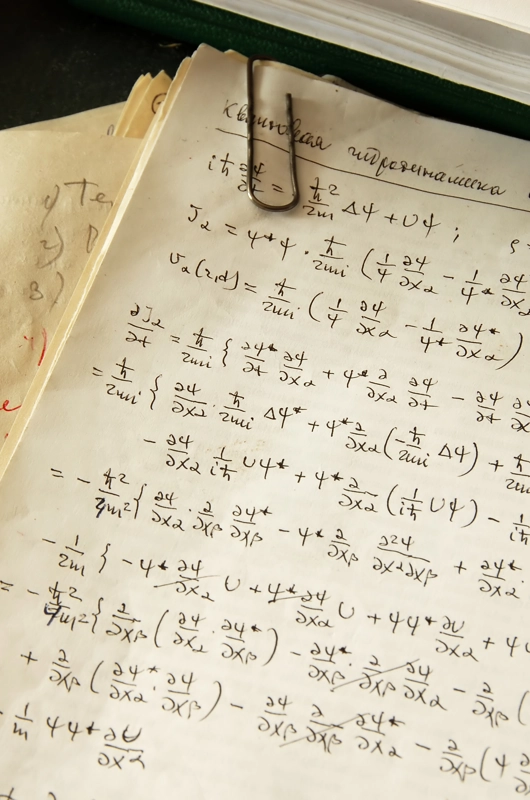 Квантовая гидродинамика
iħ ∂ψ/∂t = ħ²/2m Δψ + Uψ ; ρ =
J_α = ψ*ψ · ħ/2mi (1/ψ ∂ψ/∂x_α − 1/ψ* ∂ψ*/∂x_α
v_α(r,t) = ħ/2mi (1/ψ ∂ψ/∂x_α − 1/ψ* ∂ψ*/∂x_α)
∂J_α/∂t = ħ/2mi { ∂ψ*/∂t ∂ψ/∂x_α + ψ* ∂/∂x_α ∂ψ/∂t − ∂ψ/∂t ∂ψ
= ħ/2mi { ∂ψ/∂x_α · ħ/2mi Δψ* + ψ* ∂/∂x_α (−ħ/2mi Δψ) + ħ/2m
− ∂ψ/∂x_α 1/iħ Uψ* + ψ* ∂/∂x_α (1/iħ Uψ) − 1/iħ
= − ħ²/4m² { ∂ψ/∂x_α · ∂/∂x_β ∂ψ*/∂x_β − ψ* ∂/∂x_β ∂²ψ/∂x_α∂x_β + ∂ψ*/∂x_α ·
− 1/2m { −ψ* ∂ψ/∂x_α U + ψ* ∂ψ/∂x_α U + ψψ* ∂U/∂x_α + ψU
= − ħ²/4m² { ∂/∂x_β (∂ψ/∂x_α · ∂ψ*/∂x_β) − ∂ψ*/∂x_β · ∂/∂x_β ∂ψ/∂x_α − ∂/∂x_β (
+ ∂/∂x_β (∂ψ*/∂x_α · ∂ψ/∂x_β) − ∂ψ/∂x_β ∂/∂x_β ∂ψ*/∂x_α − ∂/∂x_β (ψ ∂
− 1/m ψψ* ∂U/∂x_α
1) Те
2)
3)